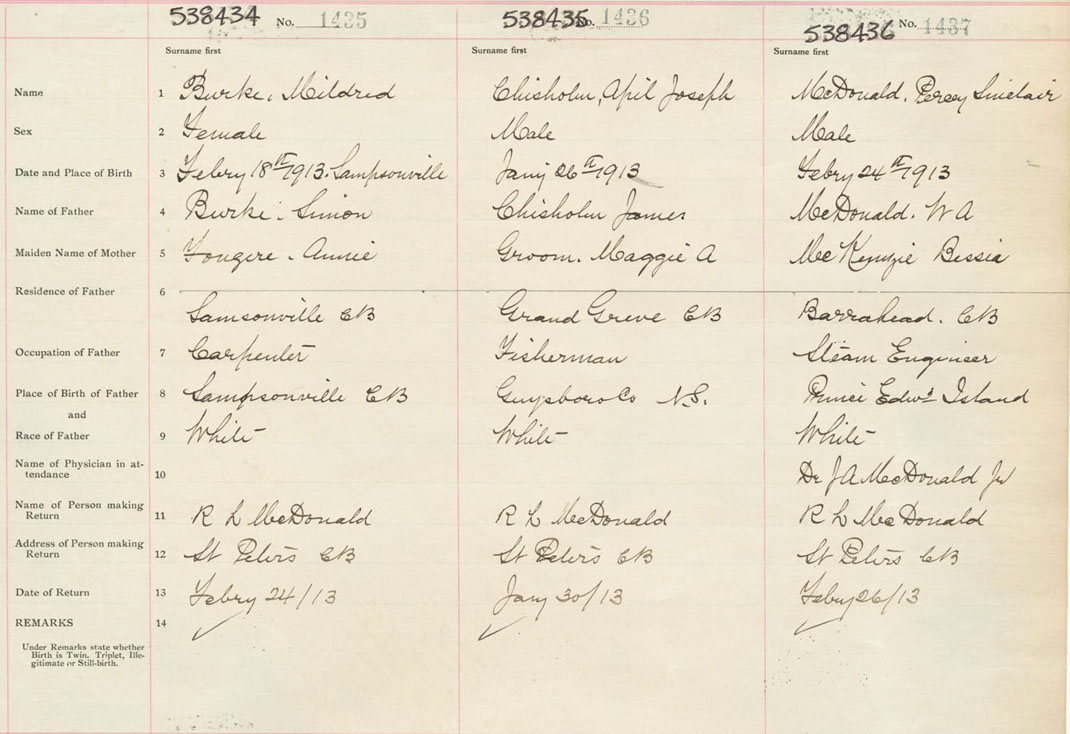 538434 No. 1435 538435 No. 1436 538436 No. 1437
Surname first Surname first Surname first
Name 1 Burke, Mildred Chisholm, April Joseph McDonald, Percy Sinclair
Sex 2 Female Male Male
Date and Place of Birth 3 Febry 18th 1913. Sampsonville Jany 26th 1913 Febry 24th 1913
Name of Father 4 Burke, Simon Chisholm James McDonald. W A
Maiden Name of Mother 5 Fougere, Annie Groom. Maggie A McKenzie Bessie
Residence of Father 6
Samsonville CB Grand Greve CB Barrahead. CB
Occupation of Father 7 Carpenter Fisherman Steam Engineer
Place of Birth of Father 8 Sampsonville CB Guysboro Co N.S. Prince Edwd Island
and
Race of Father 9 White White White
Name of Physician in at-
tendance 10 Dr J A McDonald Jr
Name of Person making
Return 11 R L McDonald R L McDonald R L McDonald
Address of Person making
Return 12 St Peters CB St Peters CB St Peters CB
Date of Return 13 Febry 24/13 Jany 30/13 Febry 26/13
REMARKS 14
Under Remarks state whether
Birth is Twin. Triplet, Ille-
gitimate or Still-birth.